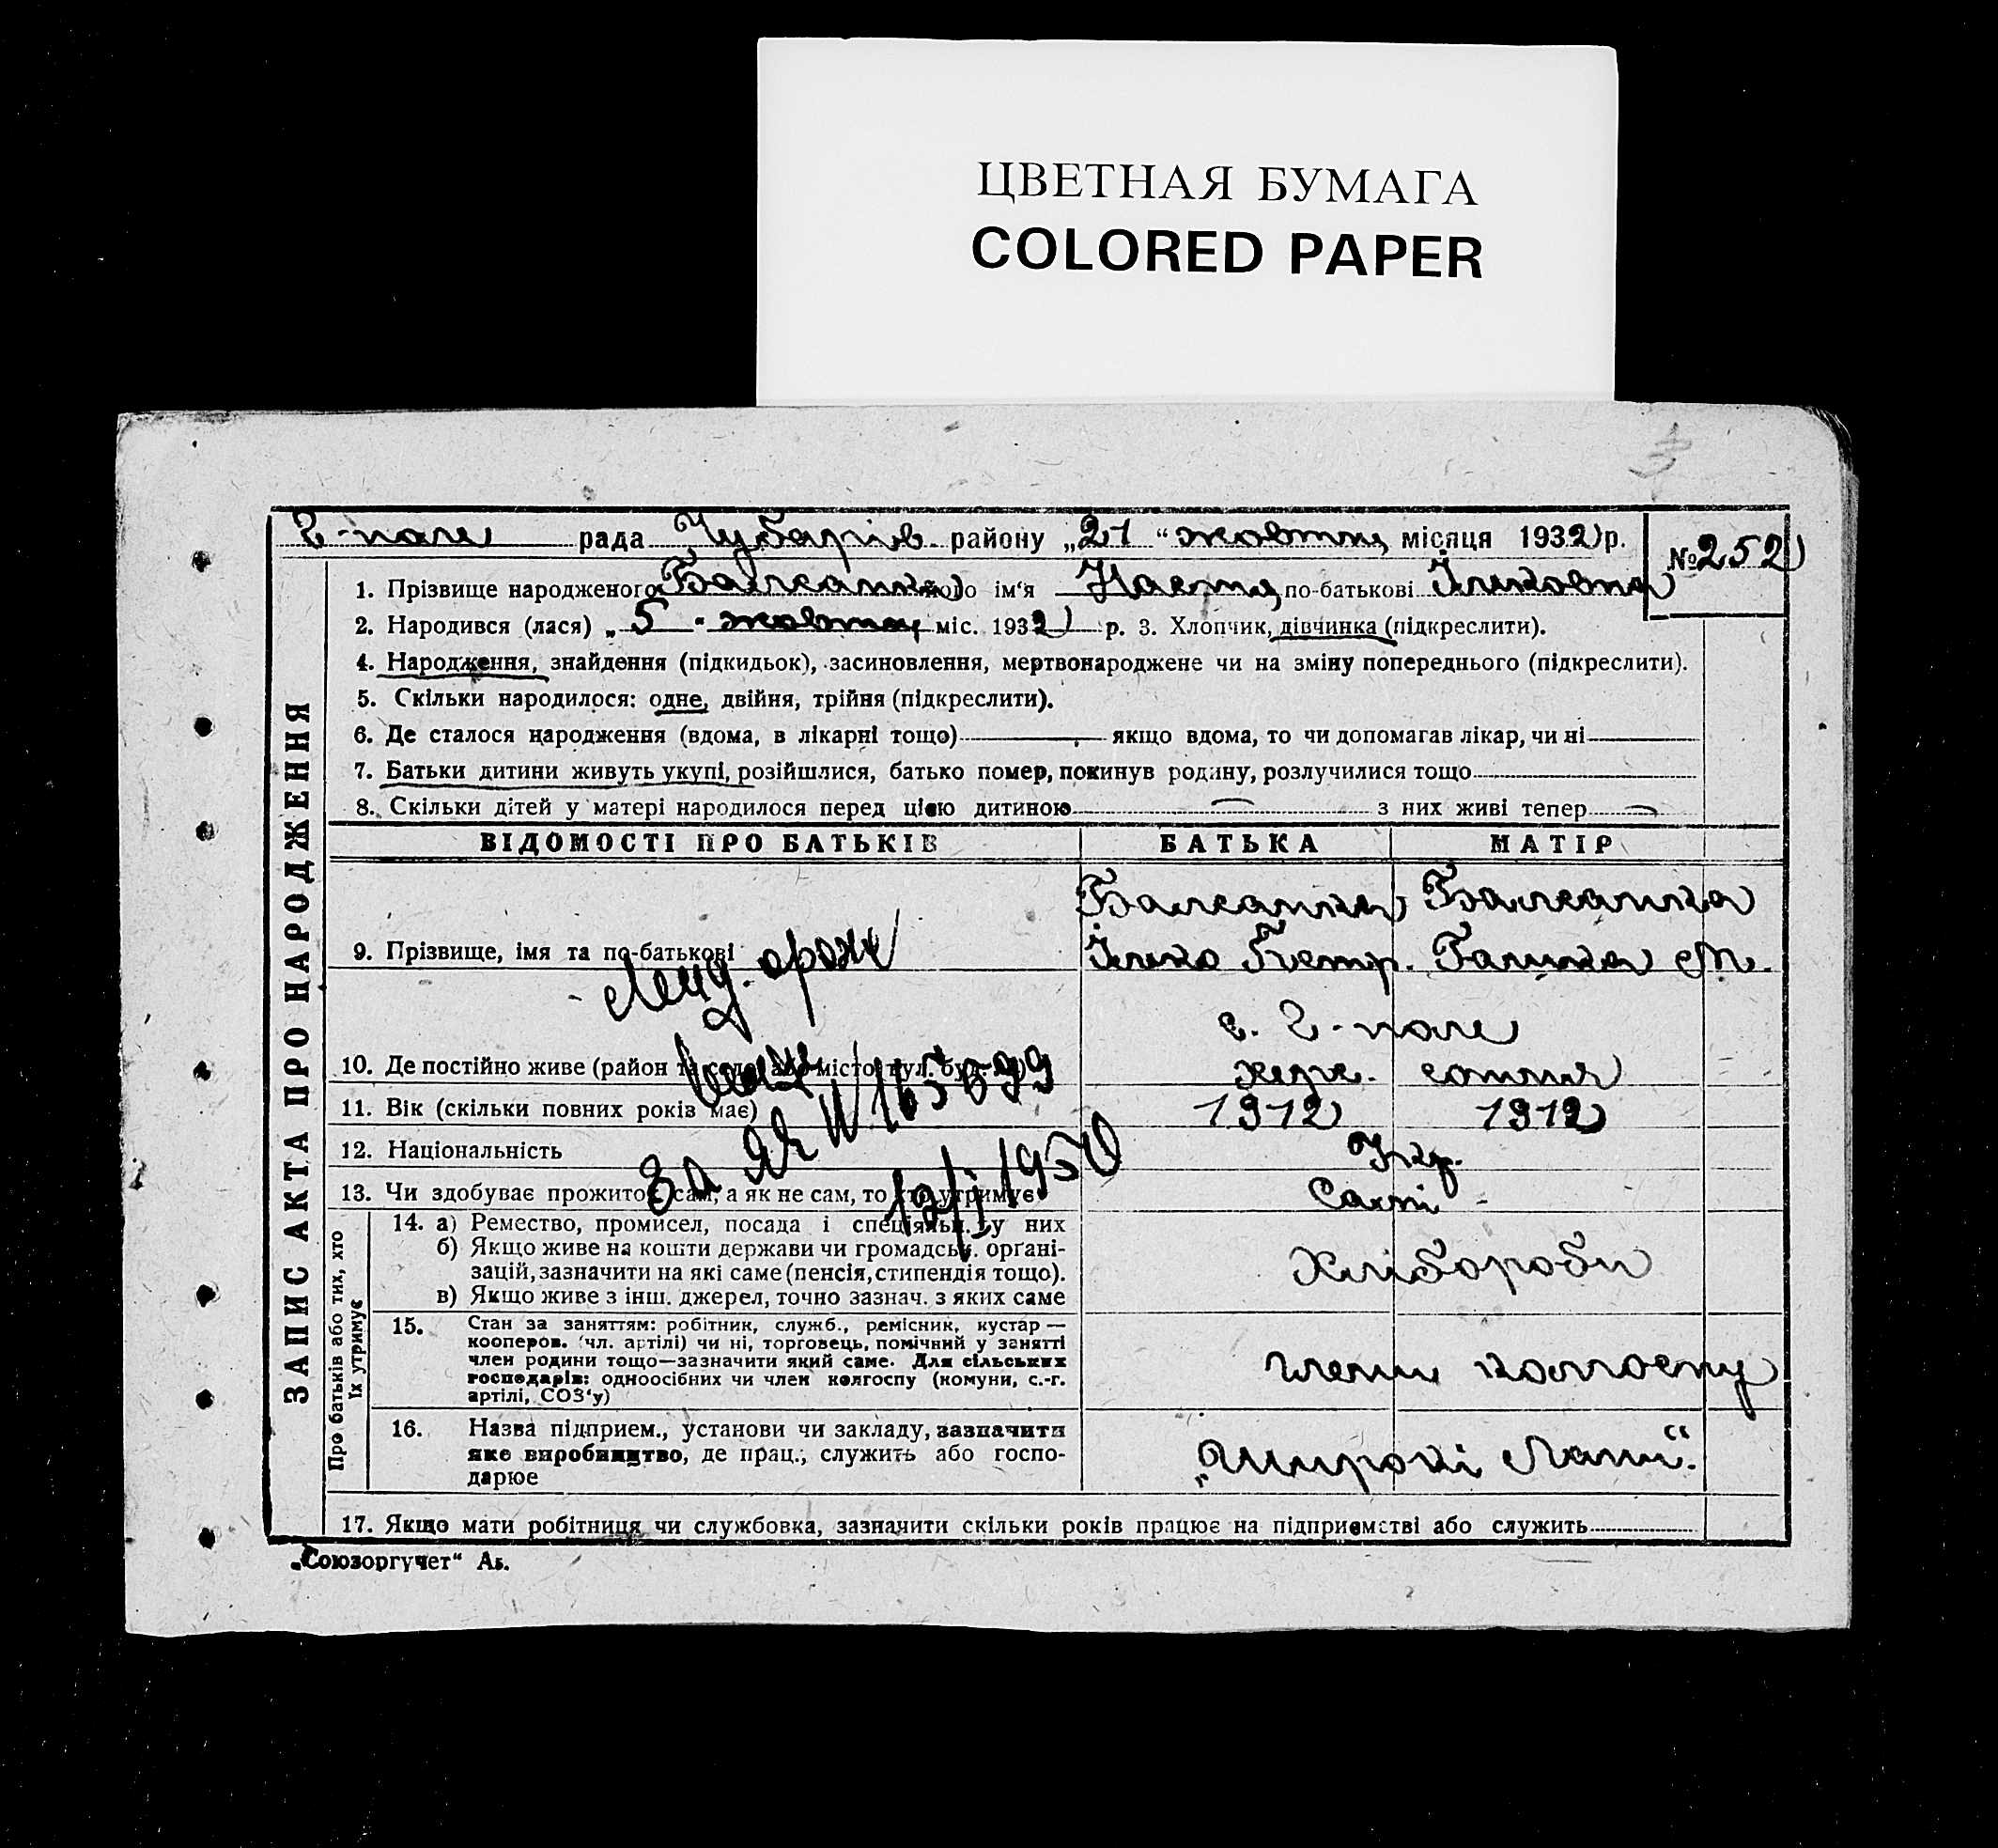 ЦВЕТНАЯ БУМАГА
COLORED PAPER
Г-поле рада Чубарів. району „21“ жовтня місяця 1932 р. № 252
1. Прізвище народженого його ім‘я Настя по-батькові Ільковна
2. Народився (лася) „5 - жовтня міс. 1932 р. 3. Хлопчик, дівчинка (підкреслити).
4. Народження, знайдення (підкидьок), засиновлення, мертвонароджене чи на зміну попереднього (підкреслити).
5. Скільки народилося: одне, двійня, трійня (підкреслити).
6. Де сталося народження (вдома, в лікарні тощо) якщо вдома, то чи допомагав лікар, чи ні
7. Батьки дитини живуть укупі, розійшлися, батько помер, покинув родину, розлучилися тощо
8. Скільки дітей у матері народилося перед цією дитиною з них живі тепер
ЗАПИС АКТА ПРО НАРОДЖЕННЯ
ВІДОМОСТІ ПРО БАТЬКІВ БАТЬКА МАТІР
9. Прізвище, імя та по-батькові Ілько Петр. Галька М.
с. Г-поле
10. Де постійно живе (район та село або місто, вул. буд. херс. сотня
11. Вік (скільки повних років має) 1912 1912
12. Національність Укр.
13. Чи здобуває прожиток сам, а як не сам, то хто утримує Самі
За
12/I 1950
Про батьків або тих, хто їх утримує
14. а) Ремество, промисел, посада і спеціяльн. у них
б) Якщо живе на кошти держави чи громадськ. органі-
зацій, зазначити на які саме (пенсія, стипендія тощо). Хлібороби
в) Якщо живе з інш. джерел, точно зазнач. з яких саме
15. Стан за заняттям: робітник, служб., ремісник, кустар —
кооперов. (чл. артілі) чи ні, торговець, помічний у занятті
член родини тощо—зазначити який саме. Для сільських
господарів: одноосібних чи член колгоспу (комуни, с.-г.
артілі, СОЗ‘у) члени колгоспу
16. Назва підприєм., установи чи закладу, зазначити
яке виробництво, де прац., служить або госпо-
дарює „Широкі Лани“.
17. Якщо мати робітниця чи службовка, зазначити скільки років працює на підприємстві або служить
„Союзоргучет“ Аз.